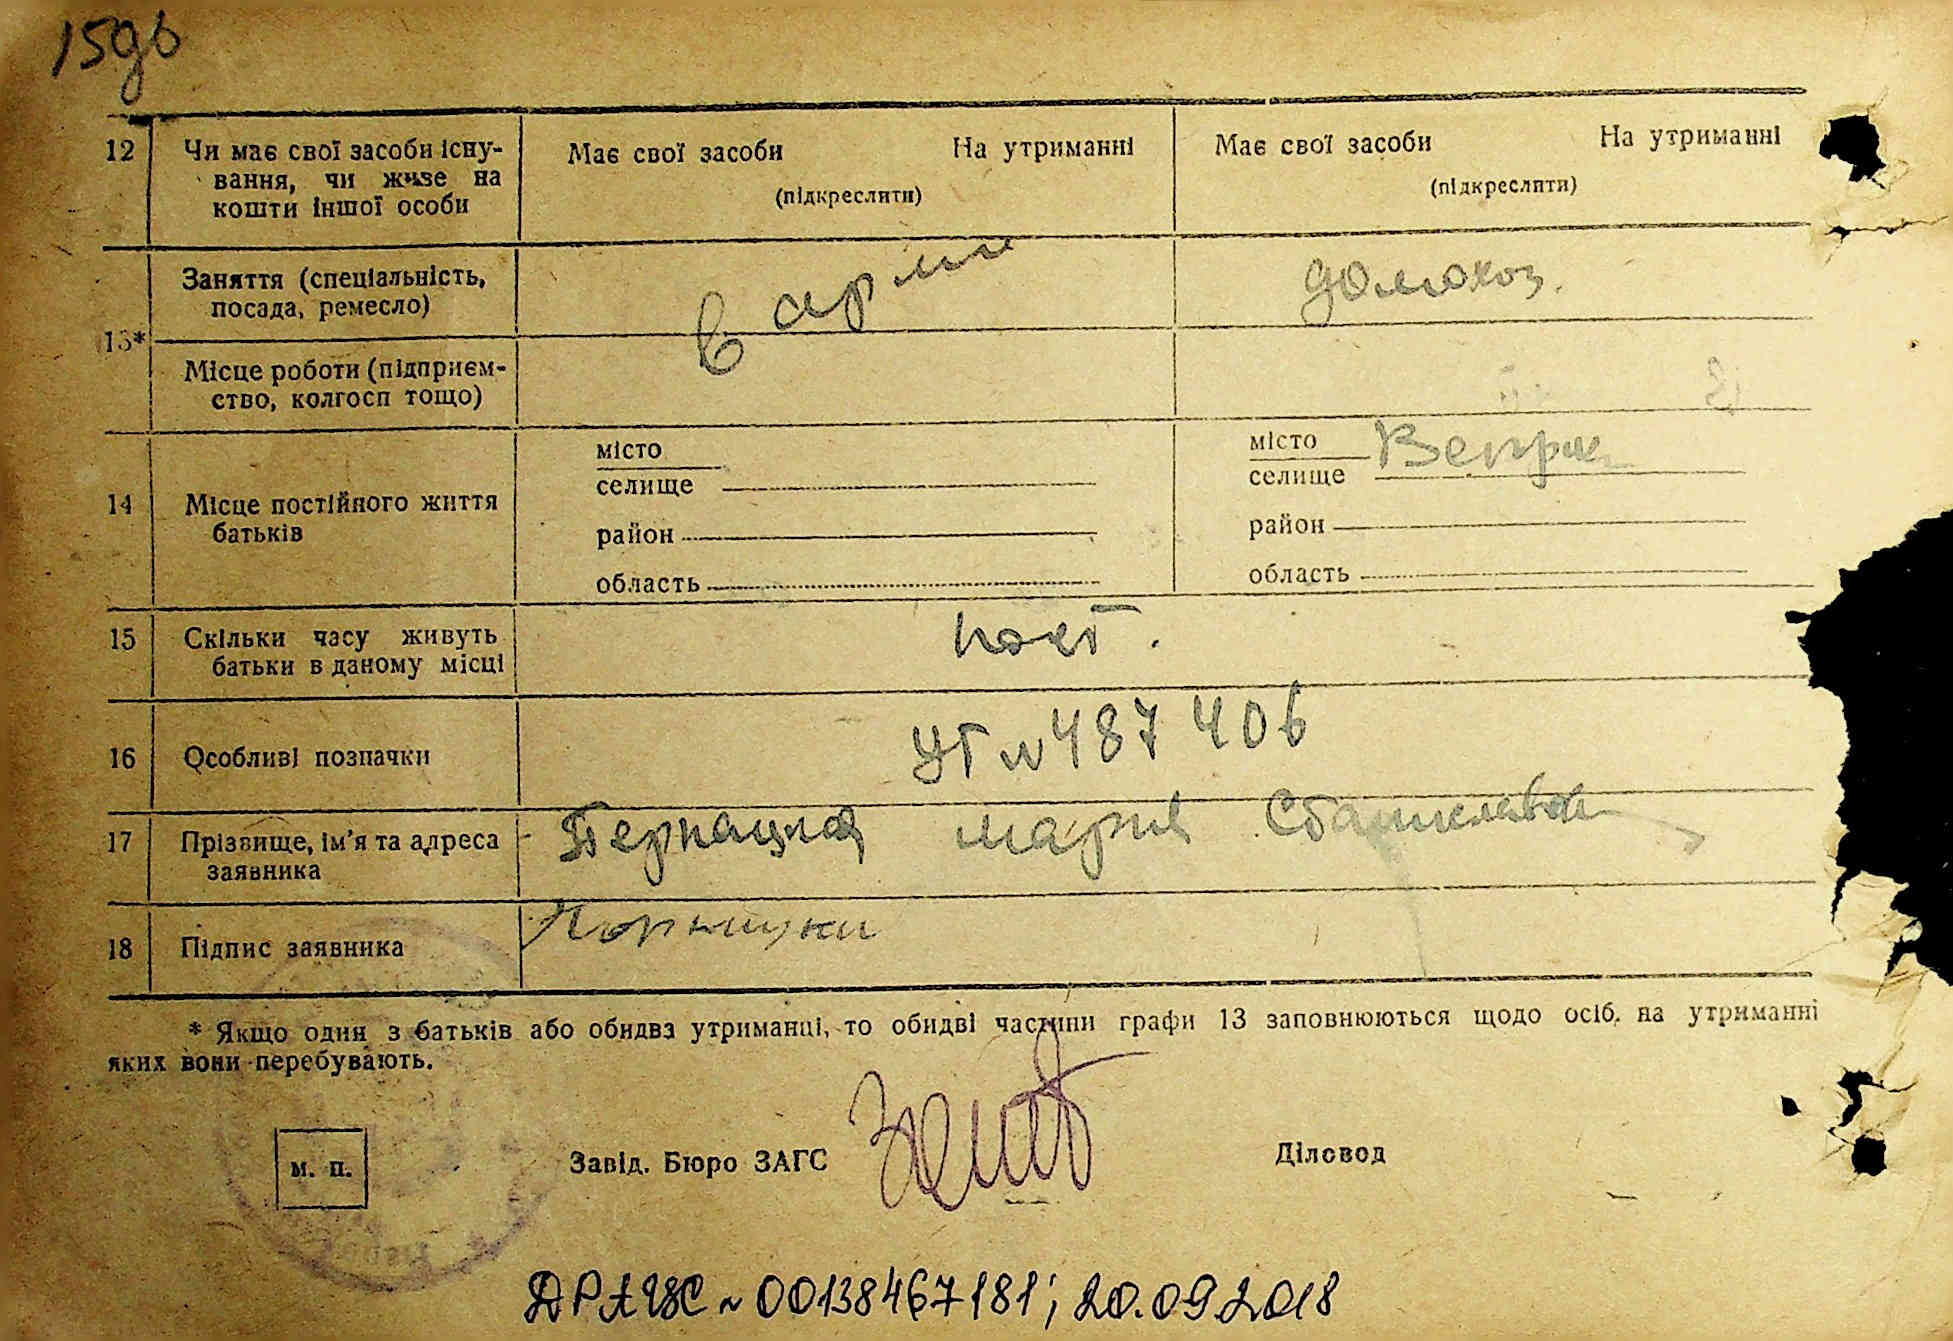 159б
12 Чи має свої засоби існу- Має свої засоби На утриманні Має свої засоби На утриманні
вання, чи живе на (підкреслити) (підкреслити)
кошти іншої особи
Заняття (спеціальність, в арми домохоз.
посада, ремесло)
13*
Місце роботи (підприєм-
ство, колгосп тощо)
місто місто Веприк
селище селище
14 Місце постійного життя район район
батьків
область область
15 Скільки часу живуть пост.
батьки в даному місці
16 Особливі позначки УГ № 487406
17 Прізвище, ім'я та адреса Мария
заявника
18 Підпис заявника
* Якщо один з батьків або обидва утриманці, то обидві частини графи 13 заповнюються щодо осіб, на утриманні
яких вони перебувають.
м. п. Завід. Бюро ЗАГС Діловод
ДРАЦС № 00138467181; 20.09.2018